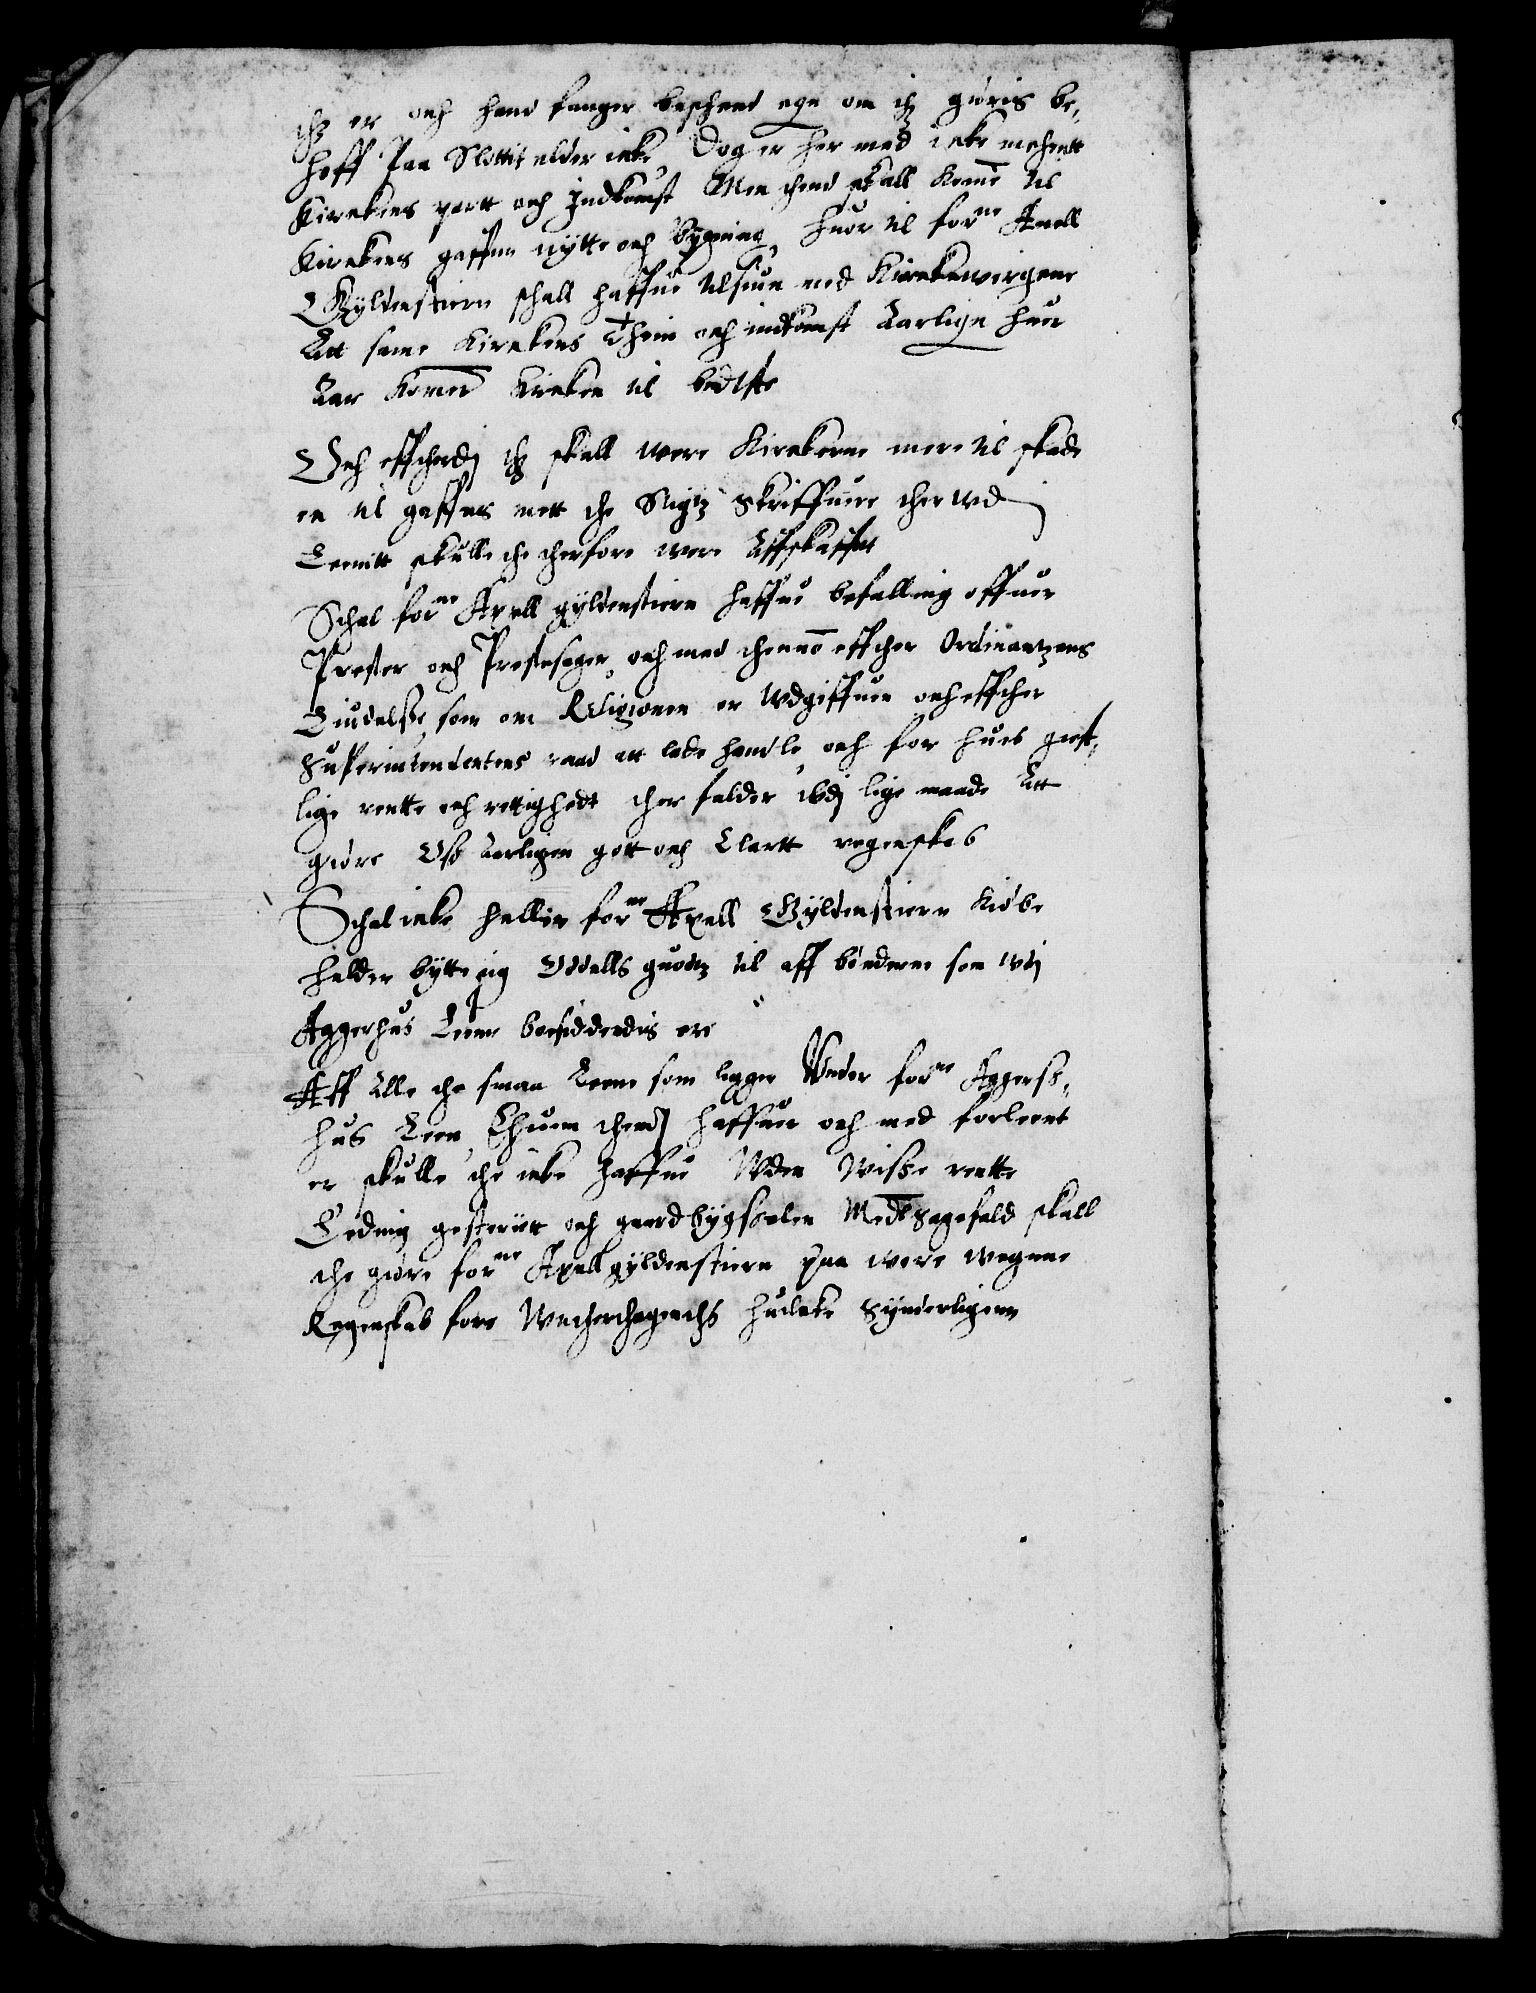 thz er och hand fanger beskeed egn om thz giøris be¬
hoff paa Slottit elder icke, Dog er her med icke mehentt
Kirckens partt och Indkomst Men thend skall kome til
Kirckens gaffnn nytte och bygning, huor til forne Axell
Gyldenstiern schall haffue tilsiun med Kirckewergene
Att same Kirckens Thein och indkomst Aarlige huer
Aar komer Kircken til bedste
Och efftherdj thz skall were Kirckerne mere til skade
en til gaffns mett the Stigtz Skriffuere ther wdj
Leenitt skulle the therfore were Affskaffett
Schal forne Axell gyldenstiern haffue befalling offuer
Prester och Prestesager, och med thennom effther Ordinantzens
Liudelsse, som om Religionen er wdgiffuen och effther
Superintendentens raad att lade handle, och for hues geist¬
lige rentte och rettighedt ther falder wdj lige maade Att
giøre Oss Aarligen gott och Clartt regenskab
Schal icke heller forne Axell Gyldenstiern Kiøbe
heller bytte sig Odells guodtz til aff bønderne som wdj
Aggerhus Leene boesiddendis ere
Aff Alle the smaa Leene som ligger Wnder forne Aggerss¬
hus Leen, Ehuem thendj haffuer och med forleent
er skulle the icke haffue Wden Wisse rentte
Leding gesteriitt och gaardbygsselen Medt Sagefald skall
the giøre forne Axell gyldenstiern paa wore wegnne
Regenskab fore Wuetherthagendis huilcke Synderligenn